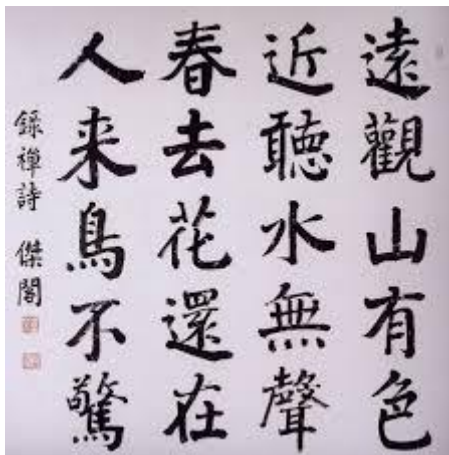 遠觀山有色
近聽水無聲
春去花還在
人来鳥不驚
錄禪詩 傑閣